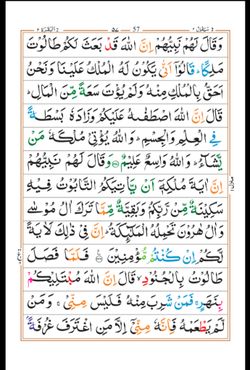 وَقَالَ لَهُمْ نَبِيُّهُمْ اِنَّ اللّٰهَ قَدْ بَعَثَ لَكُمْ طَالُوْتَ
مَلِكًا ؕ قَالُوْٓا اَنّٰى يَكُوْنُ لَهُ الْمُلْكُ عَلَيْنَا وَنَحْنُ
اَحَقُّ بِالْمُلْكِ مِنْهُ وَلَمْ يُؤْتَ سَعَةً مِّنَ الْمَالِ ؕ
قَالَ اِنَّ اللّٰهَ اصْطَفٰىهُ عَلَيْكُمْ وَزَادَهٗ بَسْطَةً
فِى الْعِلْمِ وَالْجِسْمِ ؕ وَاللّٰهُ يُؤْتِىْ مُلْكَهٗ مَنْ
يَّشَآءُ ؕ وَاللّٰهُ وَاسِعٌ عَلِيْمٌ وَقَالَ لَهُمْ نَبِيُّهُمْ
اِنَّ اٰيَةَ مُلْكِهٖٓ اَنْ يَّاْتِيَكُمُ التَّابُوْتُ فِيْهِ
سَكِيْنَةٌ مِّنْ رَّبِّكُمْ وَبَقِيَّةٌ مِّمَّا تَرَكَ اٰلُ مُوْسٰى
وَاٰلُ هٰرُوْنَ تَحْمِلُهُ الْمَلٰٓئِكَةُ ؕ اِنَّ فِىْ ذٰلِكَ لَاٰيَةً
لَّكُمْ اِنْ كُنْتُمْ مُّؤْمِنِيْنَ فَلَمَّا فَصَلَ
طَالُوْتُ بِالْجُنُوْدِ ۙ قَالَ اِنَّ اللّٰهَ مُبْتَلِيْكُمْ
بِنَهَرٍ ۚ فَمَنْ شَرِبَ مِنْهُ فَلَيْسَ مِنِّىْ ۚ وَمَنْ
لَّمْ يَطْعَمْهُ فَاِنَّهٗ مِنِّىْٓ اِلَّا مَنِ اغْتَرَفَ غُرْفَةًۢ